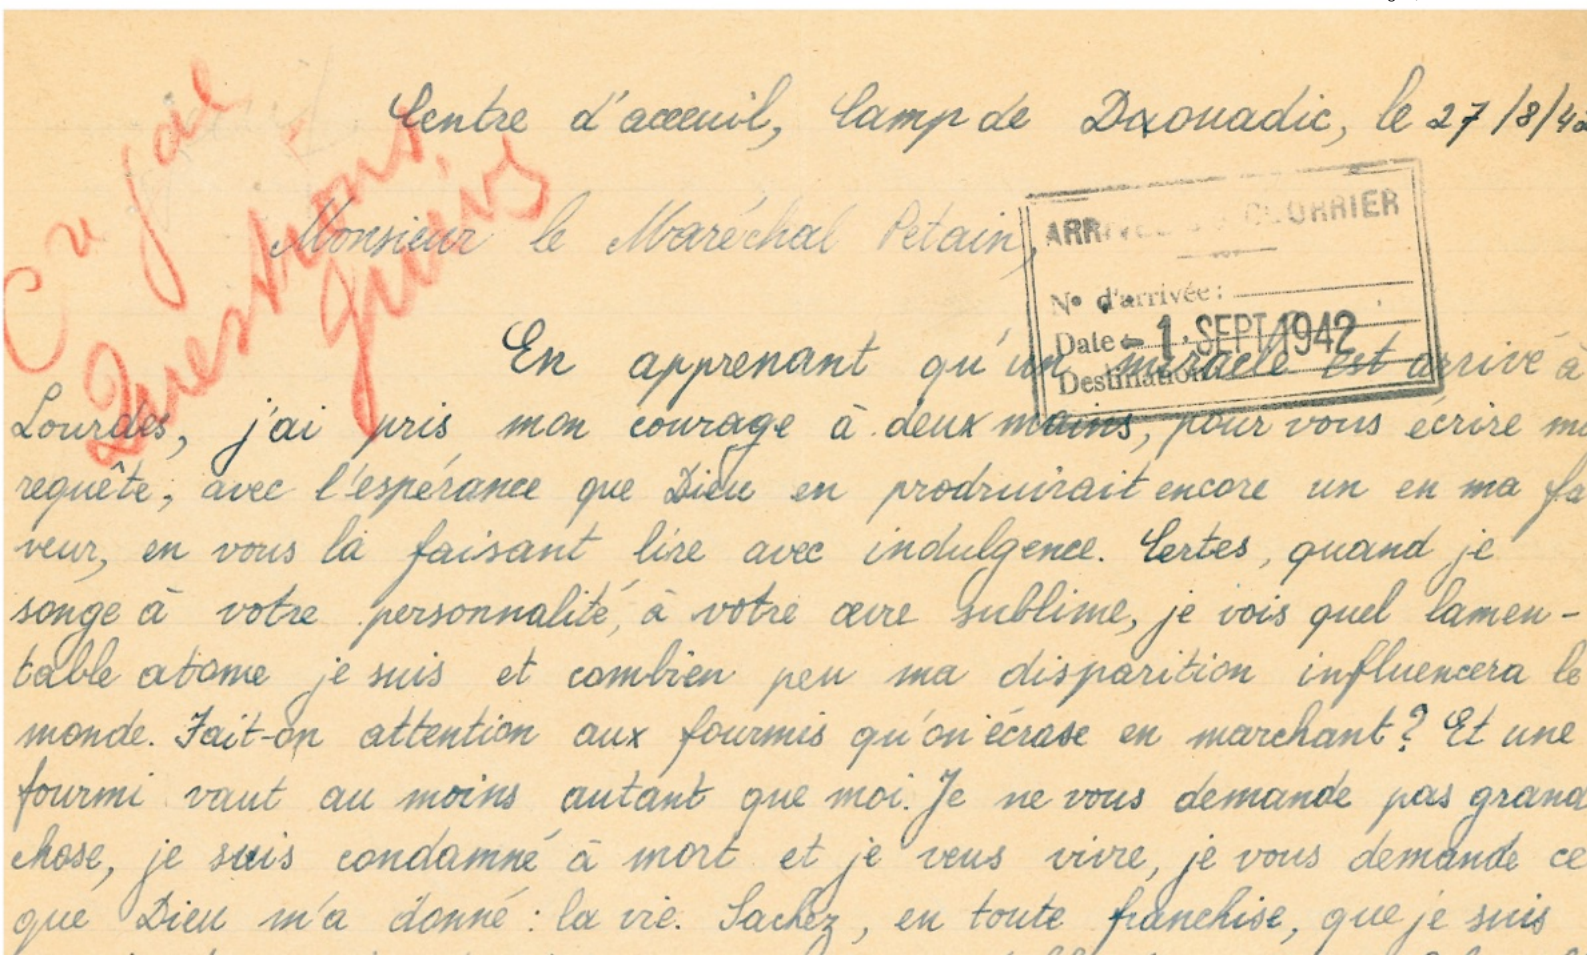 Centre d'acceuil, Camp de Daouadic, le 27/8/42
Monsieur le Maréchal Petain,
ARRIVÉE COURRIER
N° d'arrivée :
Date - 1. SEPT 1942
Destination
Questions
juives
En apprenant qu'un miracle est arrivé à
Lourdes, j'ai pris mon courage à deux mains, pour vous écrire ma
requête, avec l'espérance que Dieu en prodruirait encore un en ma fa
veur, en vous la faisant lire avec indulgence. Certes, quand je
songe à votre personnalité, à votre œvre sublime, je vois quel lamen-
table atome je suis et combien peu ma disparition influencera le
monde. Fait-on attention aux fourmis qu'on écrase en marchant ? Et une
fourmi vaut au moins autant que moi. Je ne vous demande pas grand
chose, je suis condamné à mort et je veus vivre, je vous demande ce
que Dieu m'a donné : la vie. Sachez, en toute franchise, que je suis